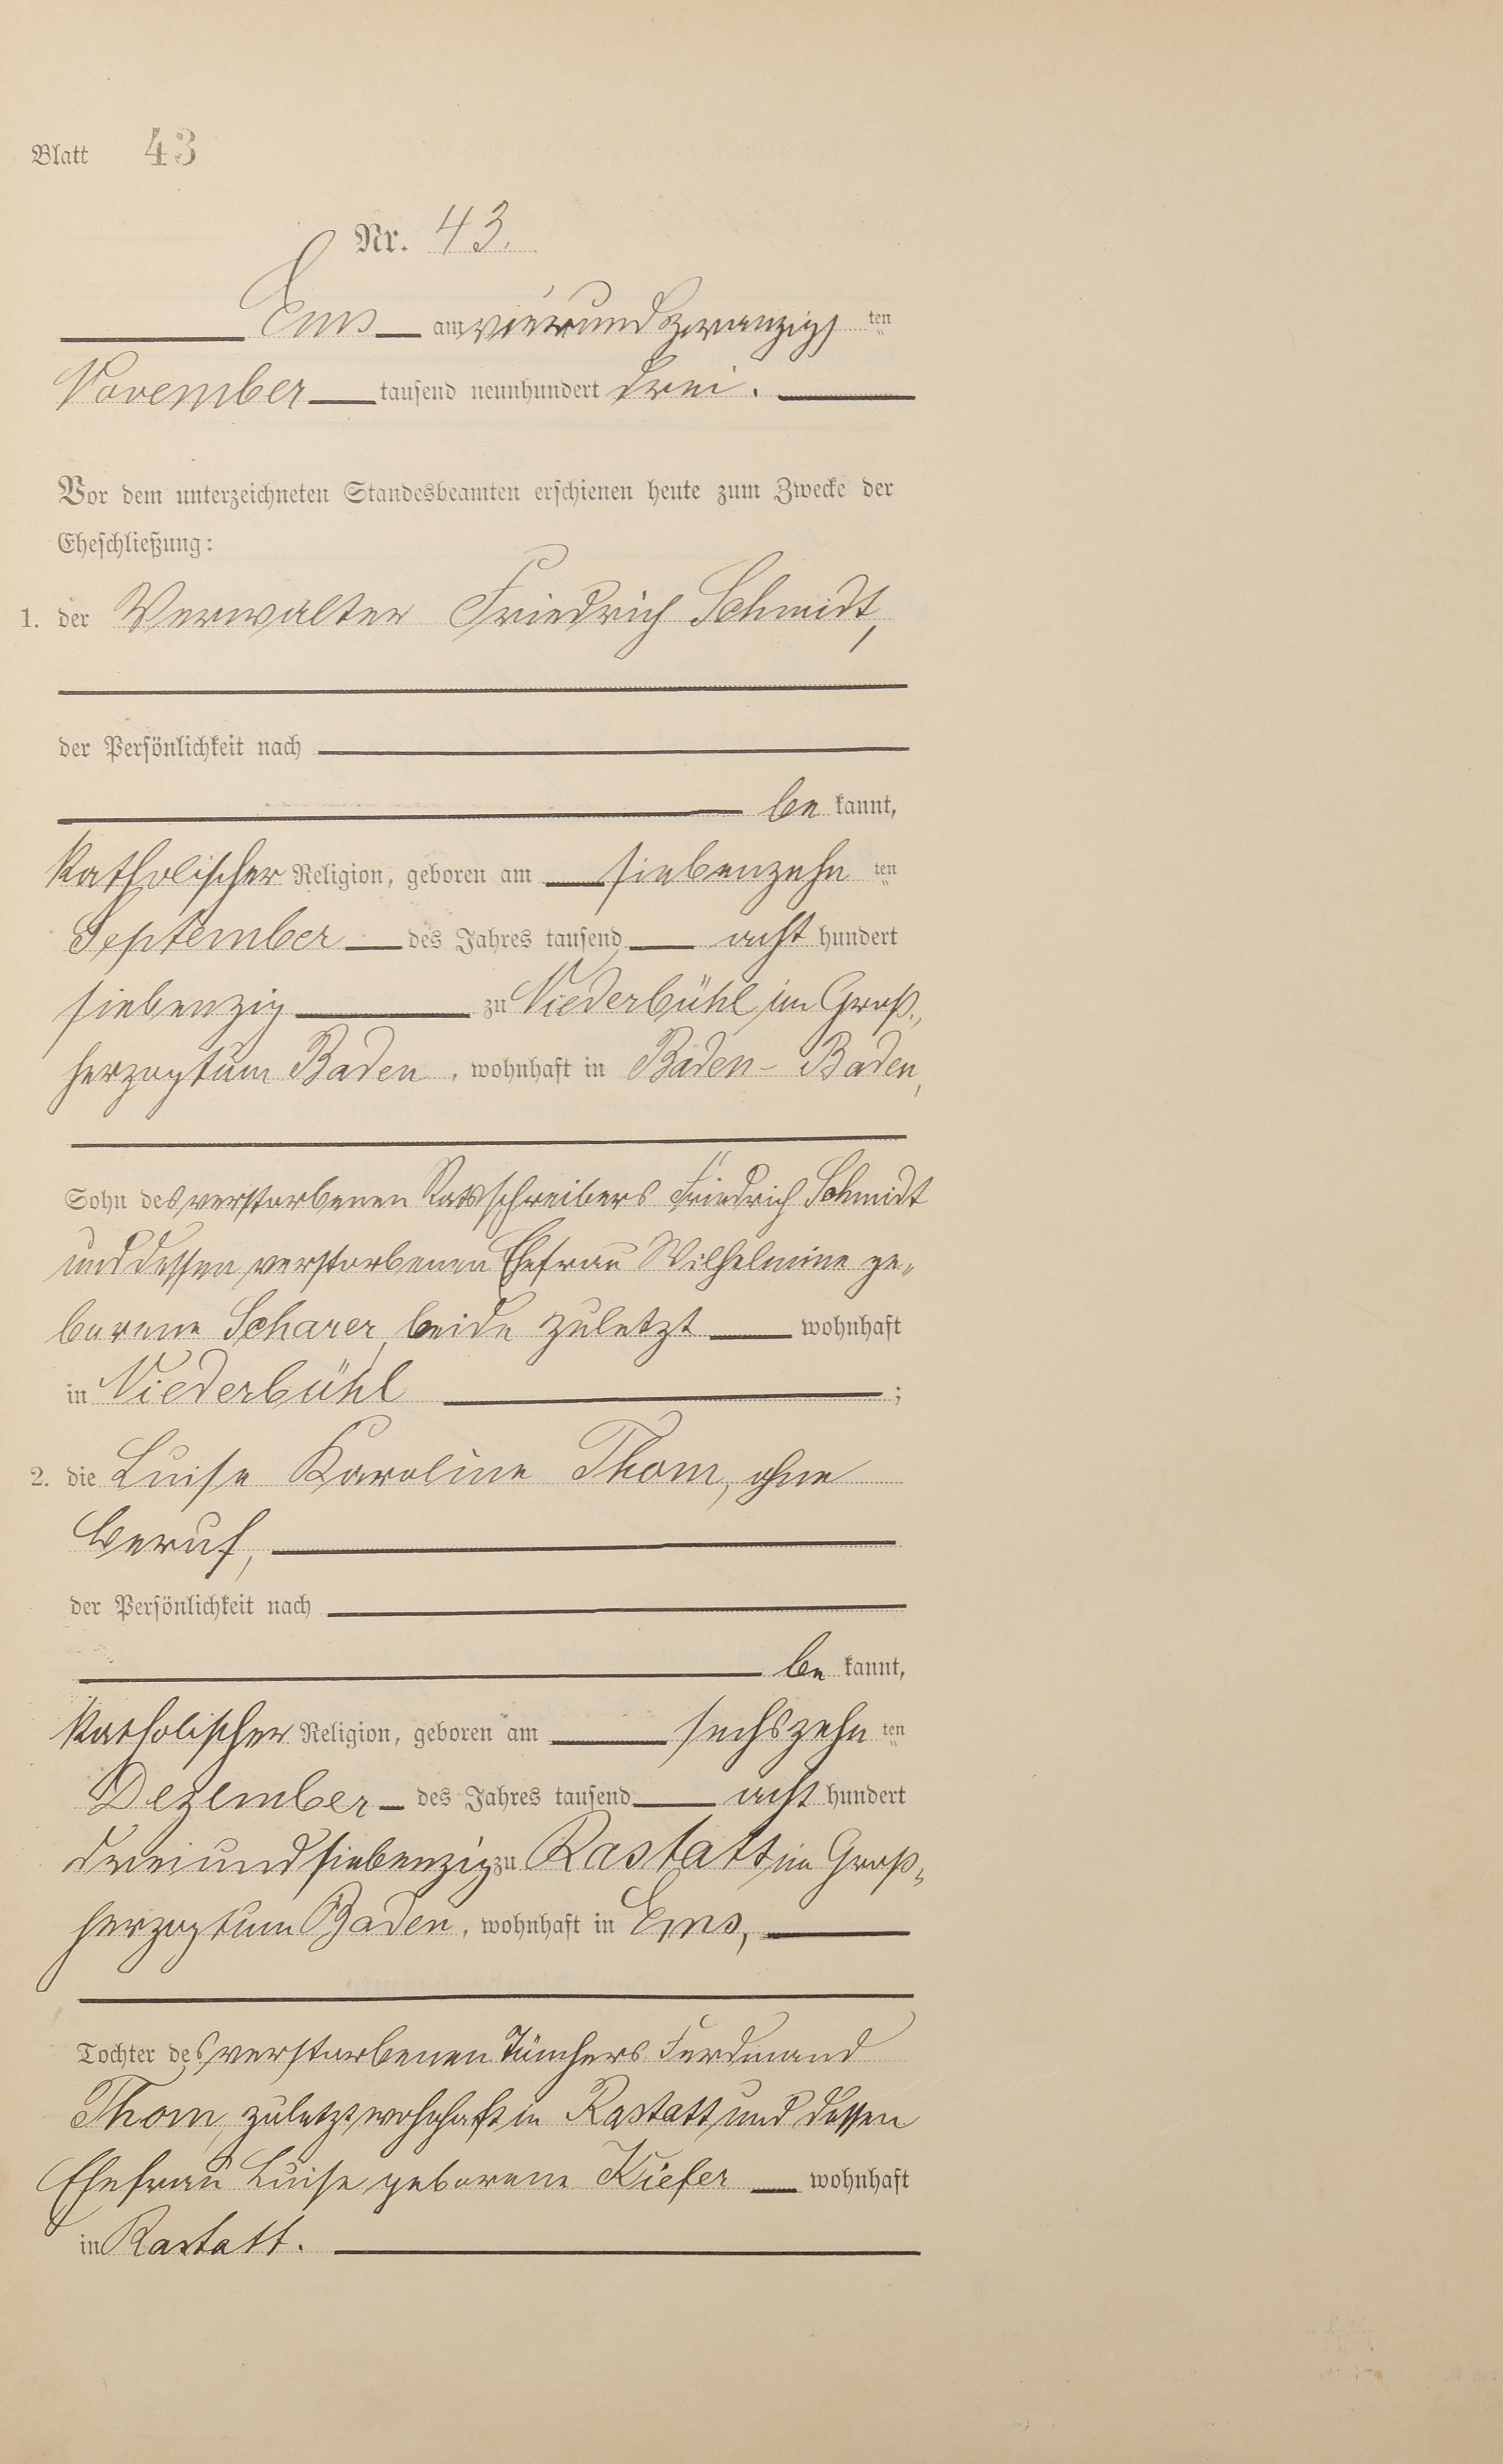 Blatt 43
Nr. 43.
Ems am vierundzwanzigsten
November tausend neunhundert drei.
Vor dem unterzeichneten Standesbeamten erschienen heute zum Zwecke der
Eheschließung:
1. der Verwalter Friedrich Schmidt,
der Persönlichkeit nach
be kannt,
katholischer Religion, geboren am siebenzehn ten
September des Jahres tausend acht hundert
siebenzig zu Niederbühl im Groß-
herzogtum Baden, wohnhaft in Baden-Baden,
Sohn des verstorbenen Ratsschreibers Friedrich Schmidt
und dessen verstorbenen Ehefrau Wilhelmine ge-
borene Scharer, beide zuletzt wohnhaft
in Niederbühl ;
2. die Luise Karoline Thom, ohne
Beruf,
der Persönlichkeit nach
be kannt,
katholischer Religion, geboren am sechszehn ten
Dezember des Jahres tausend acht hundert
dreiundsiebenzig zu Rastatt im Groß-
herzogtum Baden, wohnhaft in Ems,
Tochter des verstorbenen Tünchers Ferdinand
Thom, zuletzt wohnhaft in Rastatt und dessen
Ehefrau Luise geborene Kiefer wohnhaft
in Rastatt.